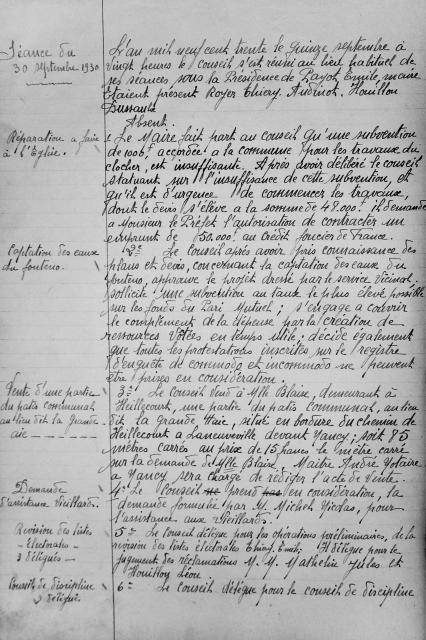 Séance du
30 septembre 1930
L'an mil neuf cent trente le quinze septembre à
vingt heures le conseil s'est réuni au lieu habituel de
ses séances sous la Présidence de Payot, Emile, maire
Etaient présent Royer Thiery. Audinot. Houillon
Dussault
Absent.
Réparation a faire
à l'Eglise.
Le Maire fait part au conseil qu'une subvention
accordée a la commune pour les travaux du
clocher, est insuffisante. Après avoir délibéré le conseil
statuant sur l'insuffisance de cette subvention, et
qu'il est d'urgence de commencer les travaux,
dont le devis s'élève a la somme de il demande
a Monsieur le Préfet l'autorisation de contracter un
emprunt de 50000. au Crédit foncier de France.
Captation des eaux
du fonteno.
2º Le Conseil après avoir pris connaissance des
plans et devis, concernant la captation des eaux du
fonteno, approuve le projet dressé par le service vicinal
sollicite une subvention au taux le plus élevé possible
sur les fonds du Pari Mutuel ; s'engage a couvrir
le complément de la dépense par la création de
ressources votées en temps utile ; décide également
que toutes les protestations inscrites sur le registre
d'enquête de commodo et incommodo ne peuvent
être prises en considération.
Vente d'une partie
du patis communal
au lieu dit la Grande
aie
3º Le Conseil vend à Mlle Blaise, demeurant à
Heillecourt, une partie du patis communal, au lieu
dit la Grande Haie, situé en bordure du chemin de
Heillecourt a Laneuveville devant Nancy, soit 85
mètres carrés au prix de 15 francs le mètre carré
sur la demande de Mlle Blaise. Maitre André Notaire
a Nancy sera chargé de rédiger l'acte de vente.
Demande
d'assistance Vieillards.
4º Le Conseil ne prend pas en considération, la
demande formulée par M. Michel Nicolas, pour
l'assistance aux Vieillards.
Revision des listes
- électorales -
3 délégués -
5º Le Conseil délègue pour les opérations préliminaires, de la
révision des listes électorales Thiery Emile; Il délègue pour le
jugement des réclamations M. M. Mathelin Jules et
Houillon Léon.
Conseil de discipline
délégué.
6º Le Conseil délègue pour le conseil de discipline